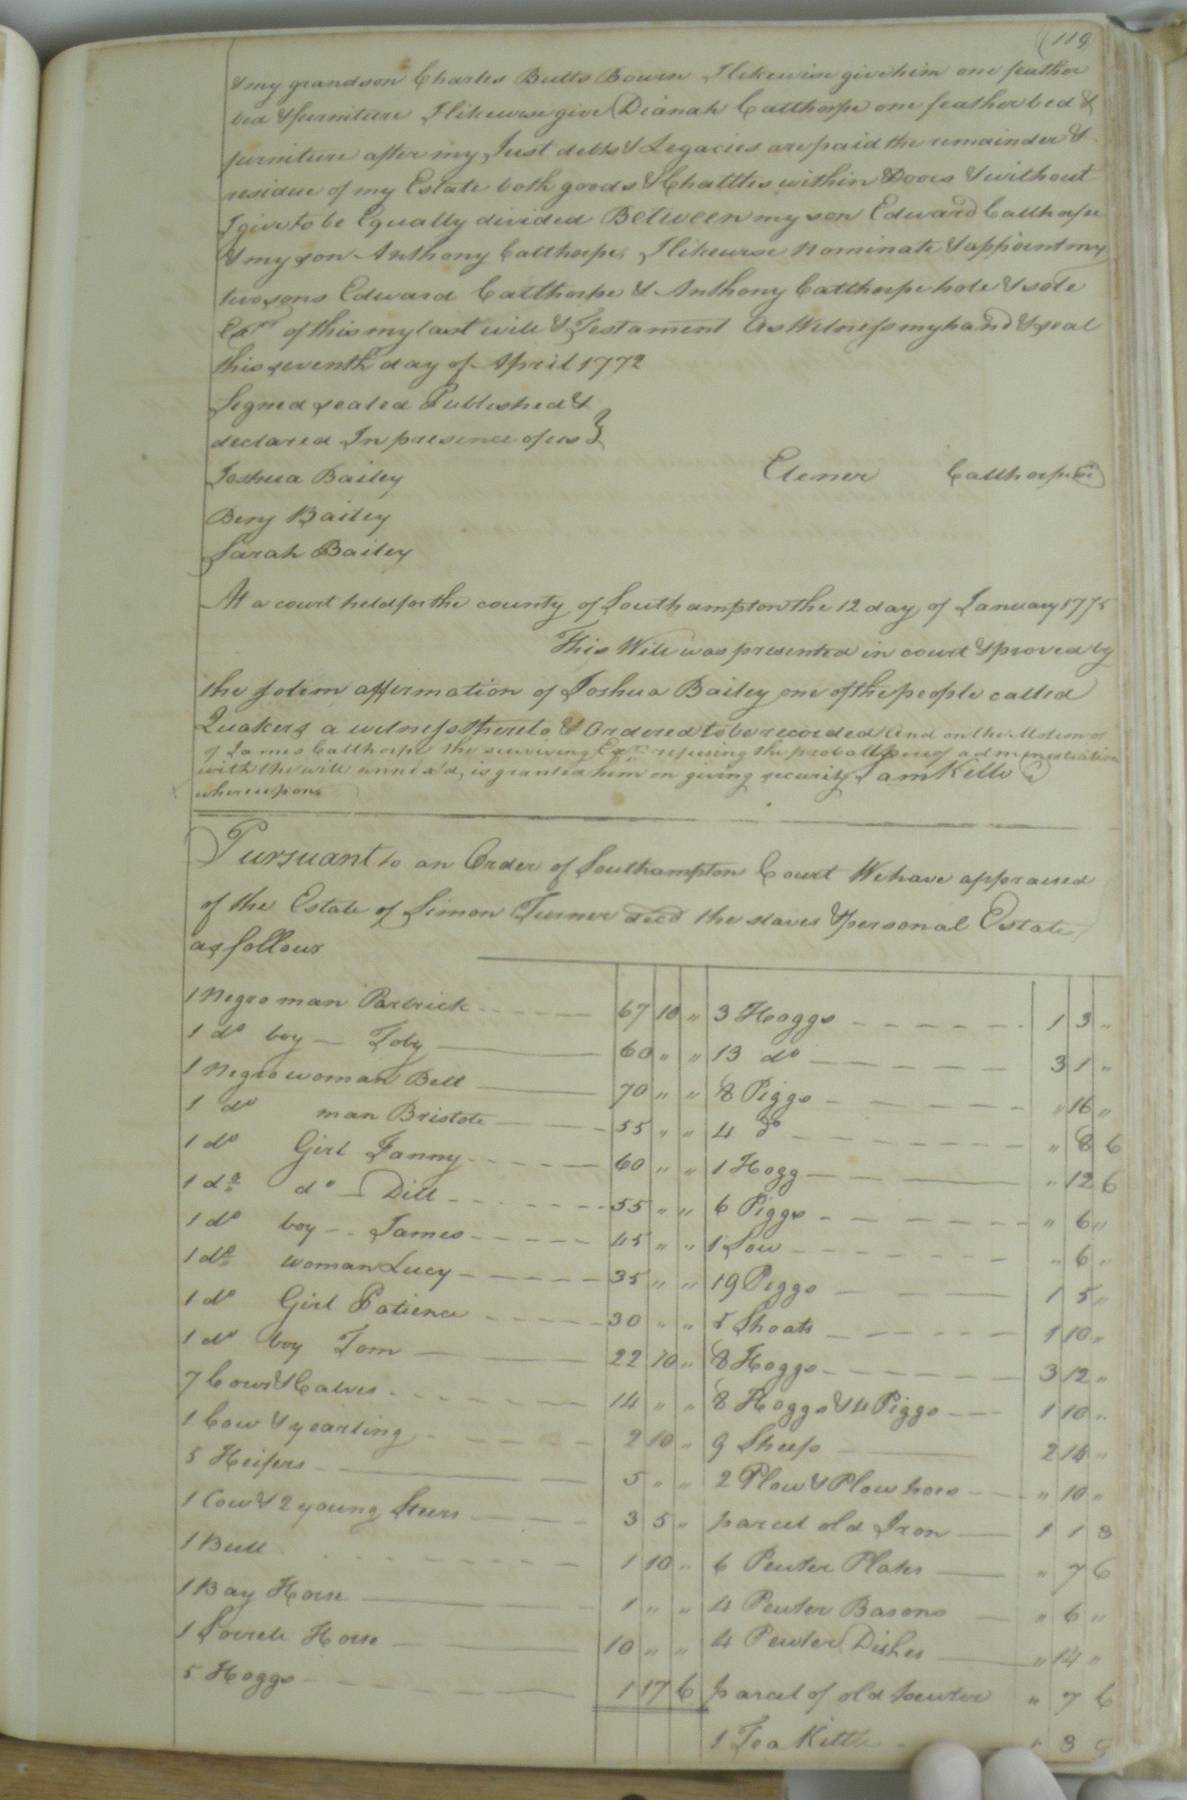 (119
& my grandson Charles Butts Bowen I likewise give him one feather
bed & furniture I likewise give Dianah Calthorpe one feather bed &
furniture after my Just debts & Legacies are paid the remainder &
residue of my Estate both goods & Chattles within Doors & without
I give to be Equally divided Between my son Edward Calthorpe
& my son Anthony Calthorpe, I likewise Nominate & appoint my
two sons Edward Calthorpe & Anthony Calthorpe hole & sole
Exrs of this my last will & Testament As Witness my hand & seal
this seventh day of April 1772
Signed sealed Published &
declared In presence of us }
Joshua Bailey Elener Calthorpe
Benj Bailey
Sarah Bailey
At a court held for the county of Southampton the 12 day of January 1775
This Will was presented in court & proved by
the solem affirmation of Joshua Bailey one of the people called
Quakers a witness thereto & Ordered to be recorded And on the Motion of
of James Calthorpe the surviving Exr refusing the probat of administration
with the will annex'd, is granted him on giving security Sam Kello
whereupon
Pursuant to an Order of Southampton Court We have appraised
of the Estate of Simon Turner decd the slaves & personal Estate
as follows
1 Negro man Partrick 67 10 "
1 do boy Toby 60 " "
1 Negro woman Bett 70 " "
1 do man Bristole 55 " "
1 do Girl Fanny 60 " "
1 do do Dill 55 " "
1 do boy James 45 " "
1 do woman Lucy 35 " "
1 do Girl Patience 30 " "
1 do boy Tom 22 10 "
7 Cows & Calves 14 " "
1 Cow & yearling 2 10 "
5 Heifers 5 " "
1 Cow & 2 young Steers 3 5 "
1 Bull 1 10 "
1 Bay Horse 1 " "
1 Sorrele Horse 10 " "
5 Hoggs 1 17 6
3 Hoggs 1 3 "
13 do 3 1 "
8 Piggs " 16 "
4 do " 8 6
1 Hogg " 12 6
6 Piggs " 6 "
1 Sow " 6 "
19 Piggs 1 5 "
5 Shoats 1 10 "
8 Hoggs 3 12 "
8 Hoggs & 4 Piggs 1 10 "
9 Sheep 2 14 "
2 Plow & Plow hoes " 10 "
parcel old Iron 1 1 3
6 Pewter Plates " 7 6
4 Pewter Basons " 6 "
4 Pewter Dishes " 14 "
parcel of old pewter " 7 6
1 Tea Kittle " 3 9